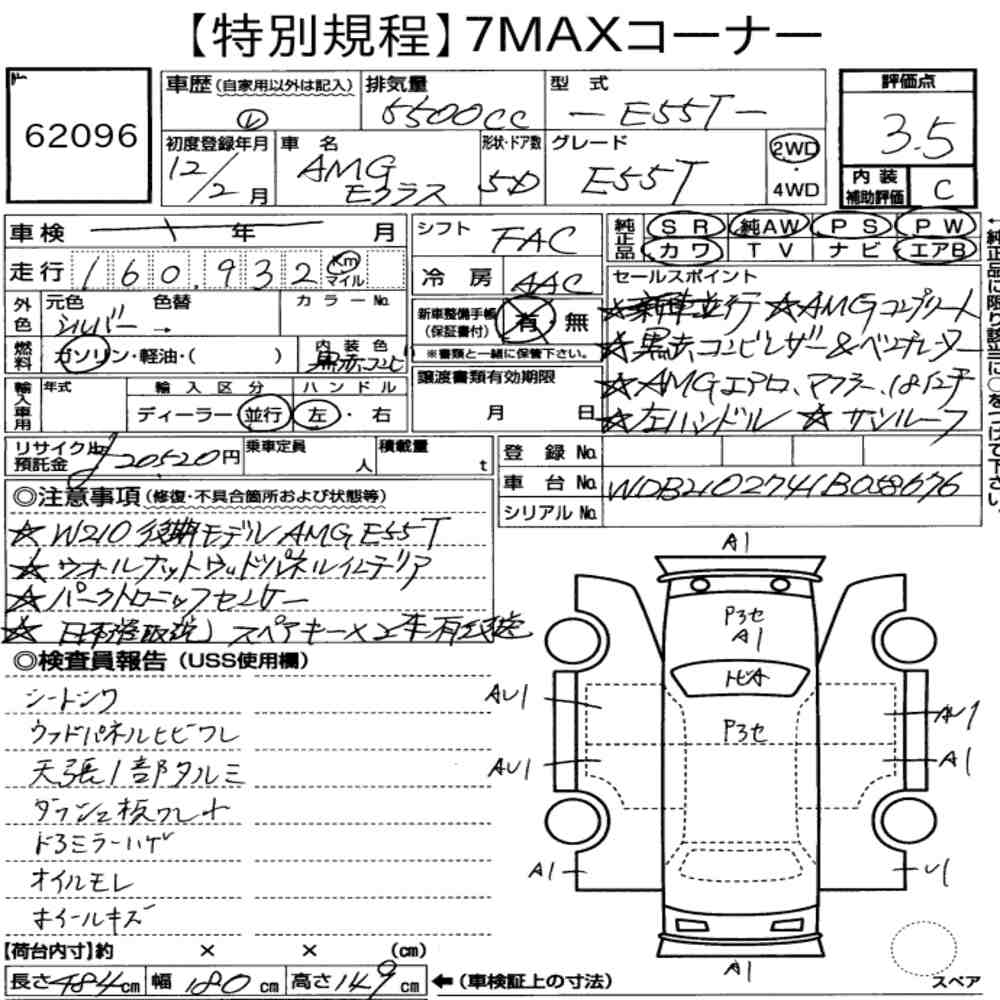 【特別規程】7MAXコーナー
62096
車歴(自家用以外は記入) 排気量 型式 評価点
5500cc －E55T－ 3.5
初度登録年月 車名 形状・ドア数 グレード
12/2月 AMG Eクラス 5D E55T 2WD・4WD
内装補助評価 C
車検 年 月 シフト FAC
純正品 SR 純AW PS PW
カワ TV ナビ エアB
走行 160,932 Km マイル 冷房 AAC
セールスポイント
外色 元色 色替 カラーNo.
シルバー →
新車整備手帳(保証書付) 有・無
※書類と一緒に保管下さい。
☆新車並行 ☆AMGコンプリート
☆黒赤コンビレザー&ベンチレーター
☆AMGエアロ、マフラー、18インチ
☆左ハンドル ☆サンルーフ
燃料 ガソリン・軽油・( ) 内装色 黒赤コンビ
輸入車用 年式 輸入区分 ハンドル
ディーラー 並行 左・右
譲渡書類有効期限
月 日
リサイクル預託金 20520円 乗車定員 人 積載量 t
登録No.
車台No. WDB2102741B058676
シリアルNo.
◎注意事項(修復・不具合箇所および状態等)
☆W210後期モデルAMG E55T
☆ウォールナットウッドパネルインテリア
☆パークトロニックセンサー
☆日本語取説 スペアキー×2
◎検査員報告(USS使用欄)
シートシワ
ウッドパネルヒビワレ
天張1部タルミ
ダッシュ板ワレ
ドアミラーハゲ
オイルモレ
ホイールキズ
A1
P3セ
A1
トビA
P3セ
AU1 AU1
AU1 A1
A1 U1
A1
【荷台内寸】約 × × (cm)
長さ484cm 幅180cm 高さ149cm ←(車検証上の寸法)
スペア
←純正品に限り該当に○をつけて下さい。